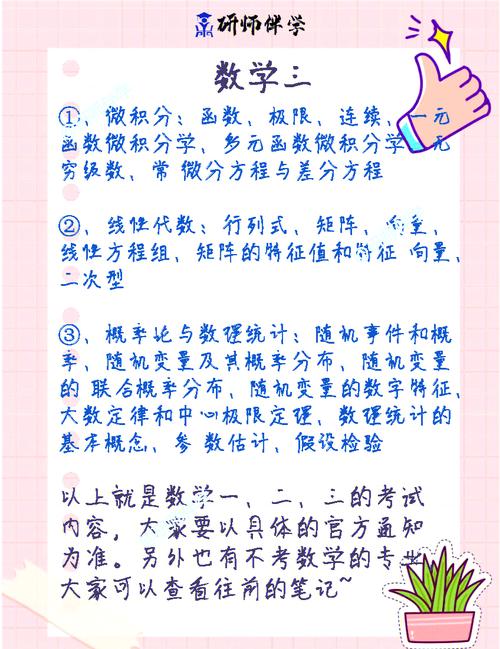 研师伴学
数学三
①、微积分：函数、极限、连续、一元
函数微积分学、多元函数微积分学、无
穷级数、常 微分方程与差分方程
②、线性代数：行列式、矩阵、向量、
线性方程组、矩阵的特征值和特征 向量、
二次型
③、概率论与数理统计：随机事件和概
率、随机变量及其概率分布、随机变量
的 联合概率分布、随机变量的数字特征、
大数定律和中心极限定理、数理统计的
基本概念、参 数估计、假设检验
以上就是数学一、二、三的考试
内容，大家要以具体的官方通知
为准。另外也有不考数学的专业
大家可以查看往前的笔记~